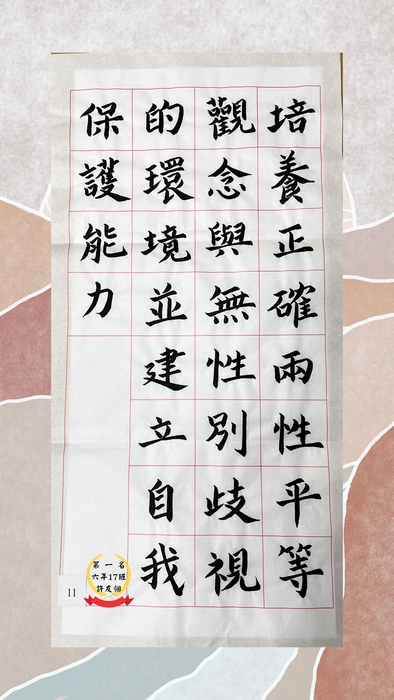 培養正確兩性平等
觀念與無性別歧視
的環境並建立自我
保護能力
第一名
六年17班
許友翎
11